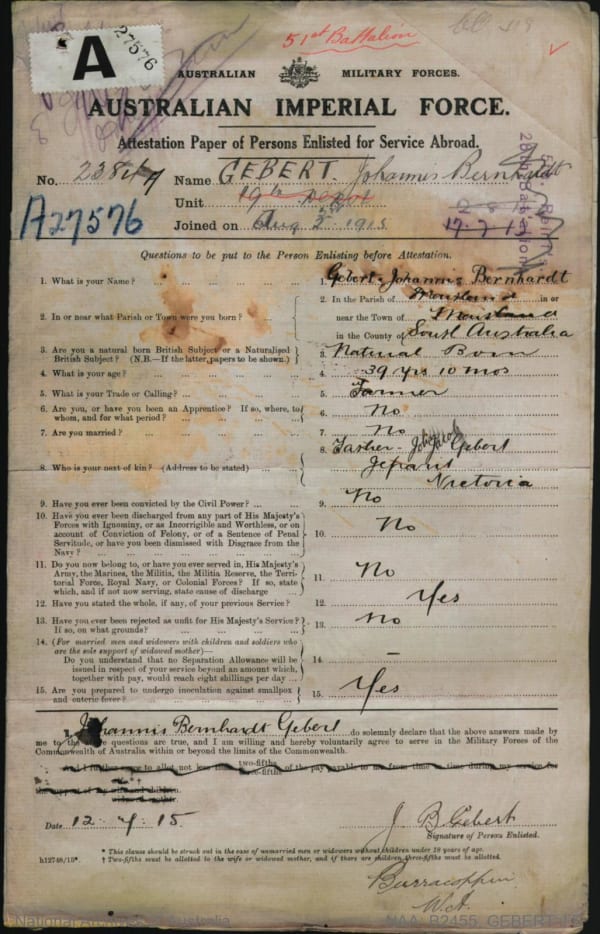 51st Battalion
A
27576
AUSTRALIAN MILITARY FORCES.
AUSTRALIAN IMPERIAL FORCE.
Attestation Paper of Persons Enlisted for Service Abroad.
No. Name GEBERT. Johannis Bernhardt
Unit 19th Depot
Joined on Aug 1915
A27576
17.7.15
28th Battalion
Questions to be put to the Person Enlisting before Attestation.
1. What is your Name? ... 1. Gebert. Johannis Bernhardt
2. In or near what Parish or Town were you born? ... 2. In the Parish of in or
near the Town of
in the County of South Australia
3. Are you a natural born British Subject or a Naturalised
British Subject? (N.B.—If the latter, papers to be shown.) 3. Natural Born
4. What is your age? ... 4. 39 yrs 10 mos
5. What is your Trade or Calling? ... 5. Farmer
6. Are you, or have you been an Apprentice? If so, where, to
whom, and for what period? ... 6. No
7. Are you married? ... 7. No
8. Who is your next of kin? (Address to be stated) ... 8. Father - Gebert
Jeparit
Victoria
9. Have you ever been convicted by the Civil Power? ... 9. No
10. Have you ever been discharged from any part of His Majesty's
Forces with Ignominy, or as Incorrigible and Worthless, or on
account of Conviction of Felony, or of a Sentence of Penal
Servitude, or have you been dismissed with Disgrace from the
Navy? ... 10. No
11. Do you now belong to, or have you ever served in, His Majesty's
Army, the Marines, the Militia, the Militia Reserve, the Terri-
torial Force, Royal Navy, or Colonial Forces? If so, state
which, and if not now serving, state cause of discharge ... 11. No
12. Have you stated the whole, if any, of your previous Service? 12. Yes
13. Have you ever been rejected as unfit for His Majesty's Service?
If so, on what grounds? ... 13. No
14. (For married men and widowers with children and soldiers who
are the sole support of widowed mother)—
Do you understand that no Separation Allowance will be
issued in respect of your service beyond an amount which,
together with pay, would reach eight shillings per day ... 14. –
15. Are you prepared to undergo inoculation against smallpox
and enteric fever? ... 15. Yes
I, Johannis Bernhardt Gebert do solemnly declare that the above answers made by
me to the above questions are true, and I am willing and hereby voluntarily agree to serve in the Military Forces of the
Commonwealth of Australia within or beyond the limits of the Commonwealth.
two-fifths
And I further agree to allot not less than three-fifths of the pay payable to me from time to time during my service for
the support of my wife and children.
Date 12.7.15 J. B. Gebert
Signature of Person Enlisted.
* This clause should be struck out in the case of unmarried men or widowers without children under 18 years of age.
h12748/15*. † Two-fifths must be allotted to the wife or widowed mother, and if there are children three-fifths must be allotted.
Burracoppin
W.A.
National Archives of Australia NAA: B2455, GEBERT J B